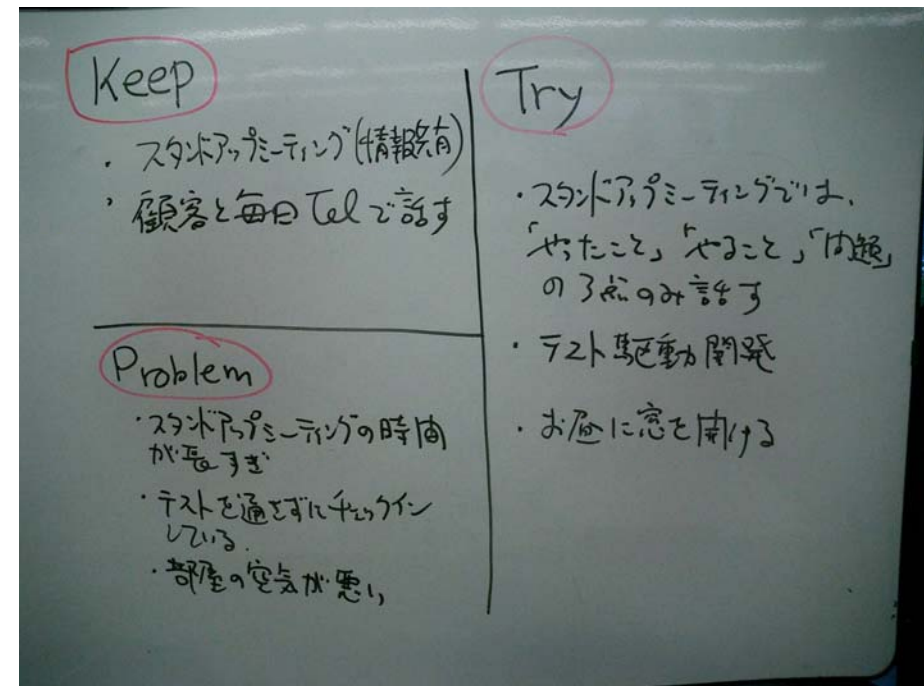 Keep
・スタンドアップミーティング(情報共有)
・顧客と毎日Telで話す
Problem
・スタンドアップミーティングの時間
が長すぎ
・テストを通さずにチェックイン
している.
・部屋の空気が悪い
Try
・スタンドアップミーティングでは、
「やったこと」「やること」「問題」
の3点のみ話す
・テスト駆動開発
・お昼に窓を開ける